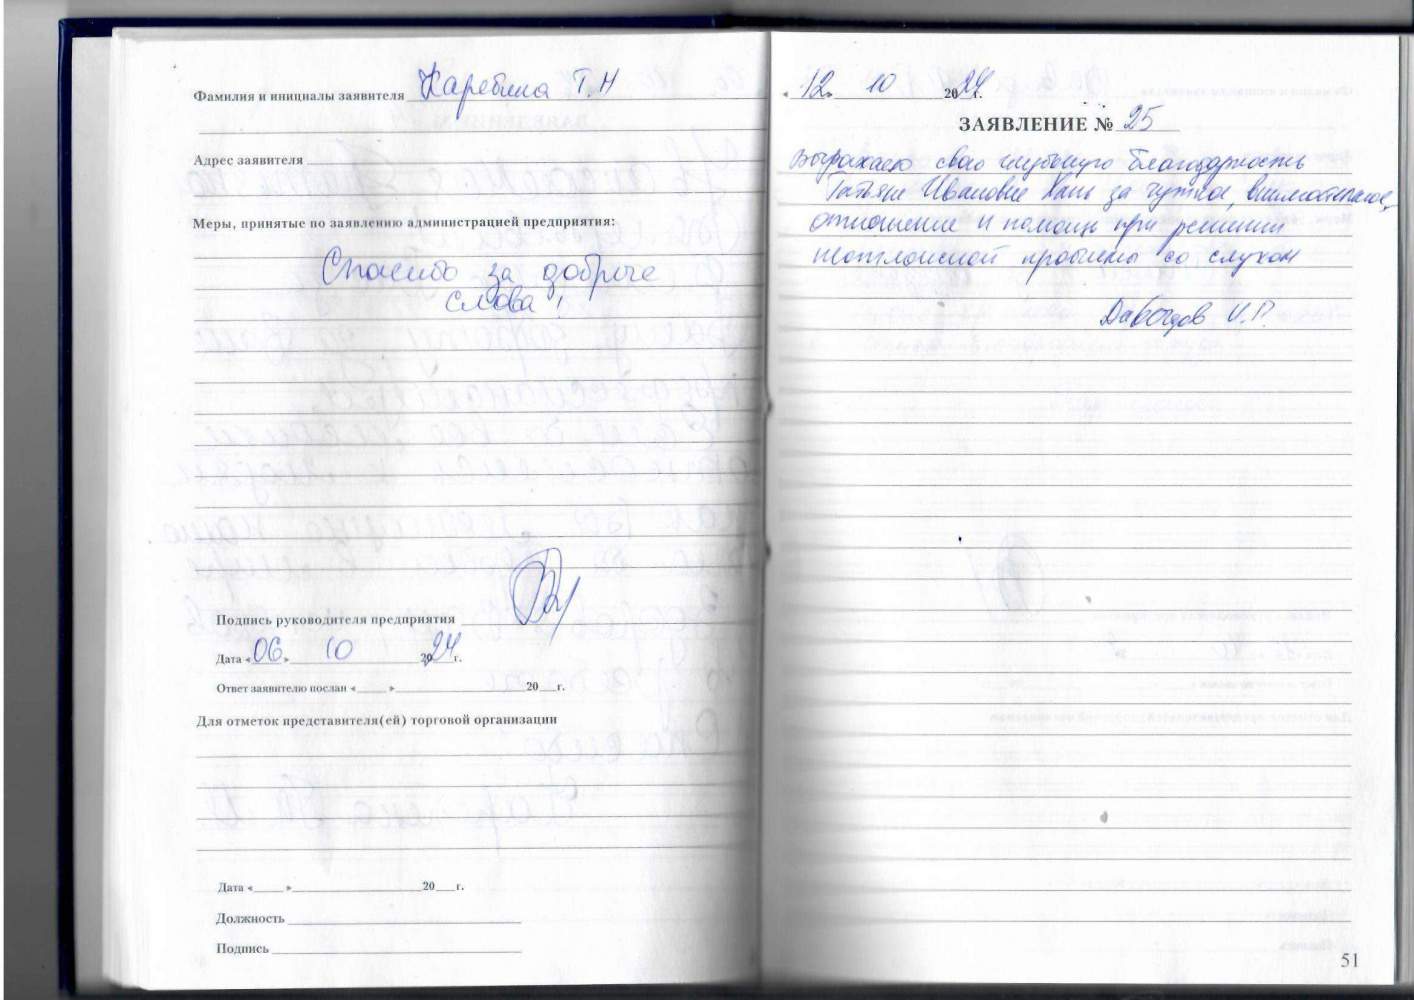 Фамилия и инициалы заявителя Каребина Т.Н
Адрес заявителя
Меры, принятые по заявлению администрацией предприятия:
Спасибо за добрые
слова!
Подпись руководителя предприятия
Дата «06» 10 2024г.
Ответ заявителю послан «____» ____ 20__г.
Для отметок представителя(ей) торговой организации
Дата «____» ____ 20__г.
Должность
Подпись
«12» 10 2024г.
ЗАЯВЛЕНИЕ № 25
Выражаю свою глубокую благодарность
Татьяне Ивановне за чуткое, внимательное
отношение и помощь при решении
неотложной проблемы со слухом
Давыдов И.Р.
51